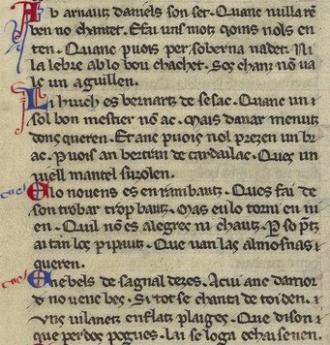 b arnautz daniels son set. Quanc nulla re
ben no chantet. Efai uns motz qoms nols en
ten. Quanc puois per soberna nadet. Ni
la lebre ab lo bou chachet. Sos chanz no ua
lc un aguillen.
Li huich es bernartz de sesac. Quanc un i
sol bon mestier no ac. Mais danar menutz
dons queren. Et anc puois nol prezen un br
ac. Puois an bertram de cardailac. Ques un
uell mantel suzolen.
Olo nouens es en raimbautz. Ques fai de
son trobar trop bautz. Mas eu lo torni en ni
en. Quil non es alegres ni chautz. P so ptz
aitan los pipautz. Que van las almosnas
queren.
Onebels de sagnal dezes. Acui anc damor
no uenc bes. Si tot se chanta de coiden. i
vns uilanetz enflatz plaiges. Que dison
que per dos poges. Lai se loga echai se uen.